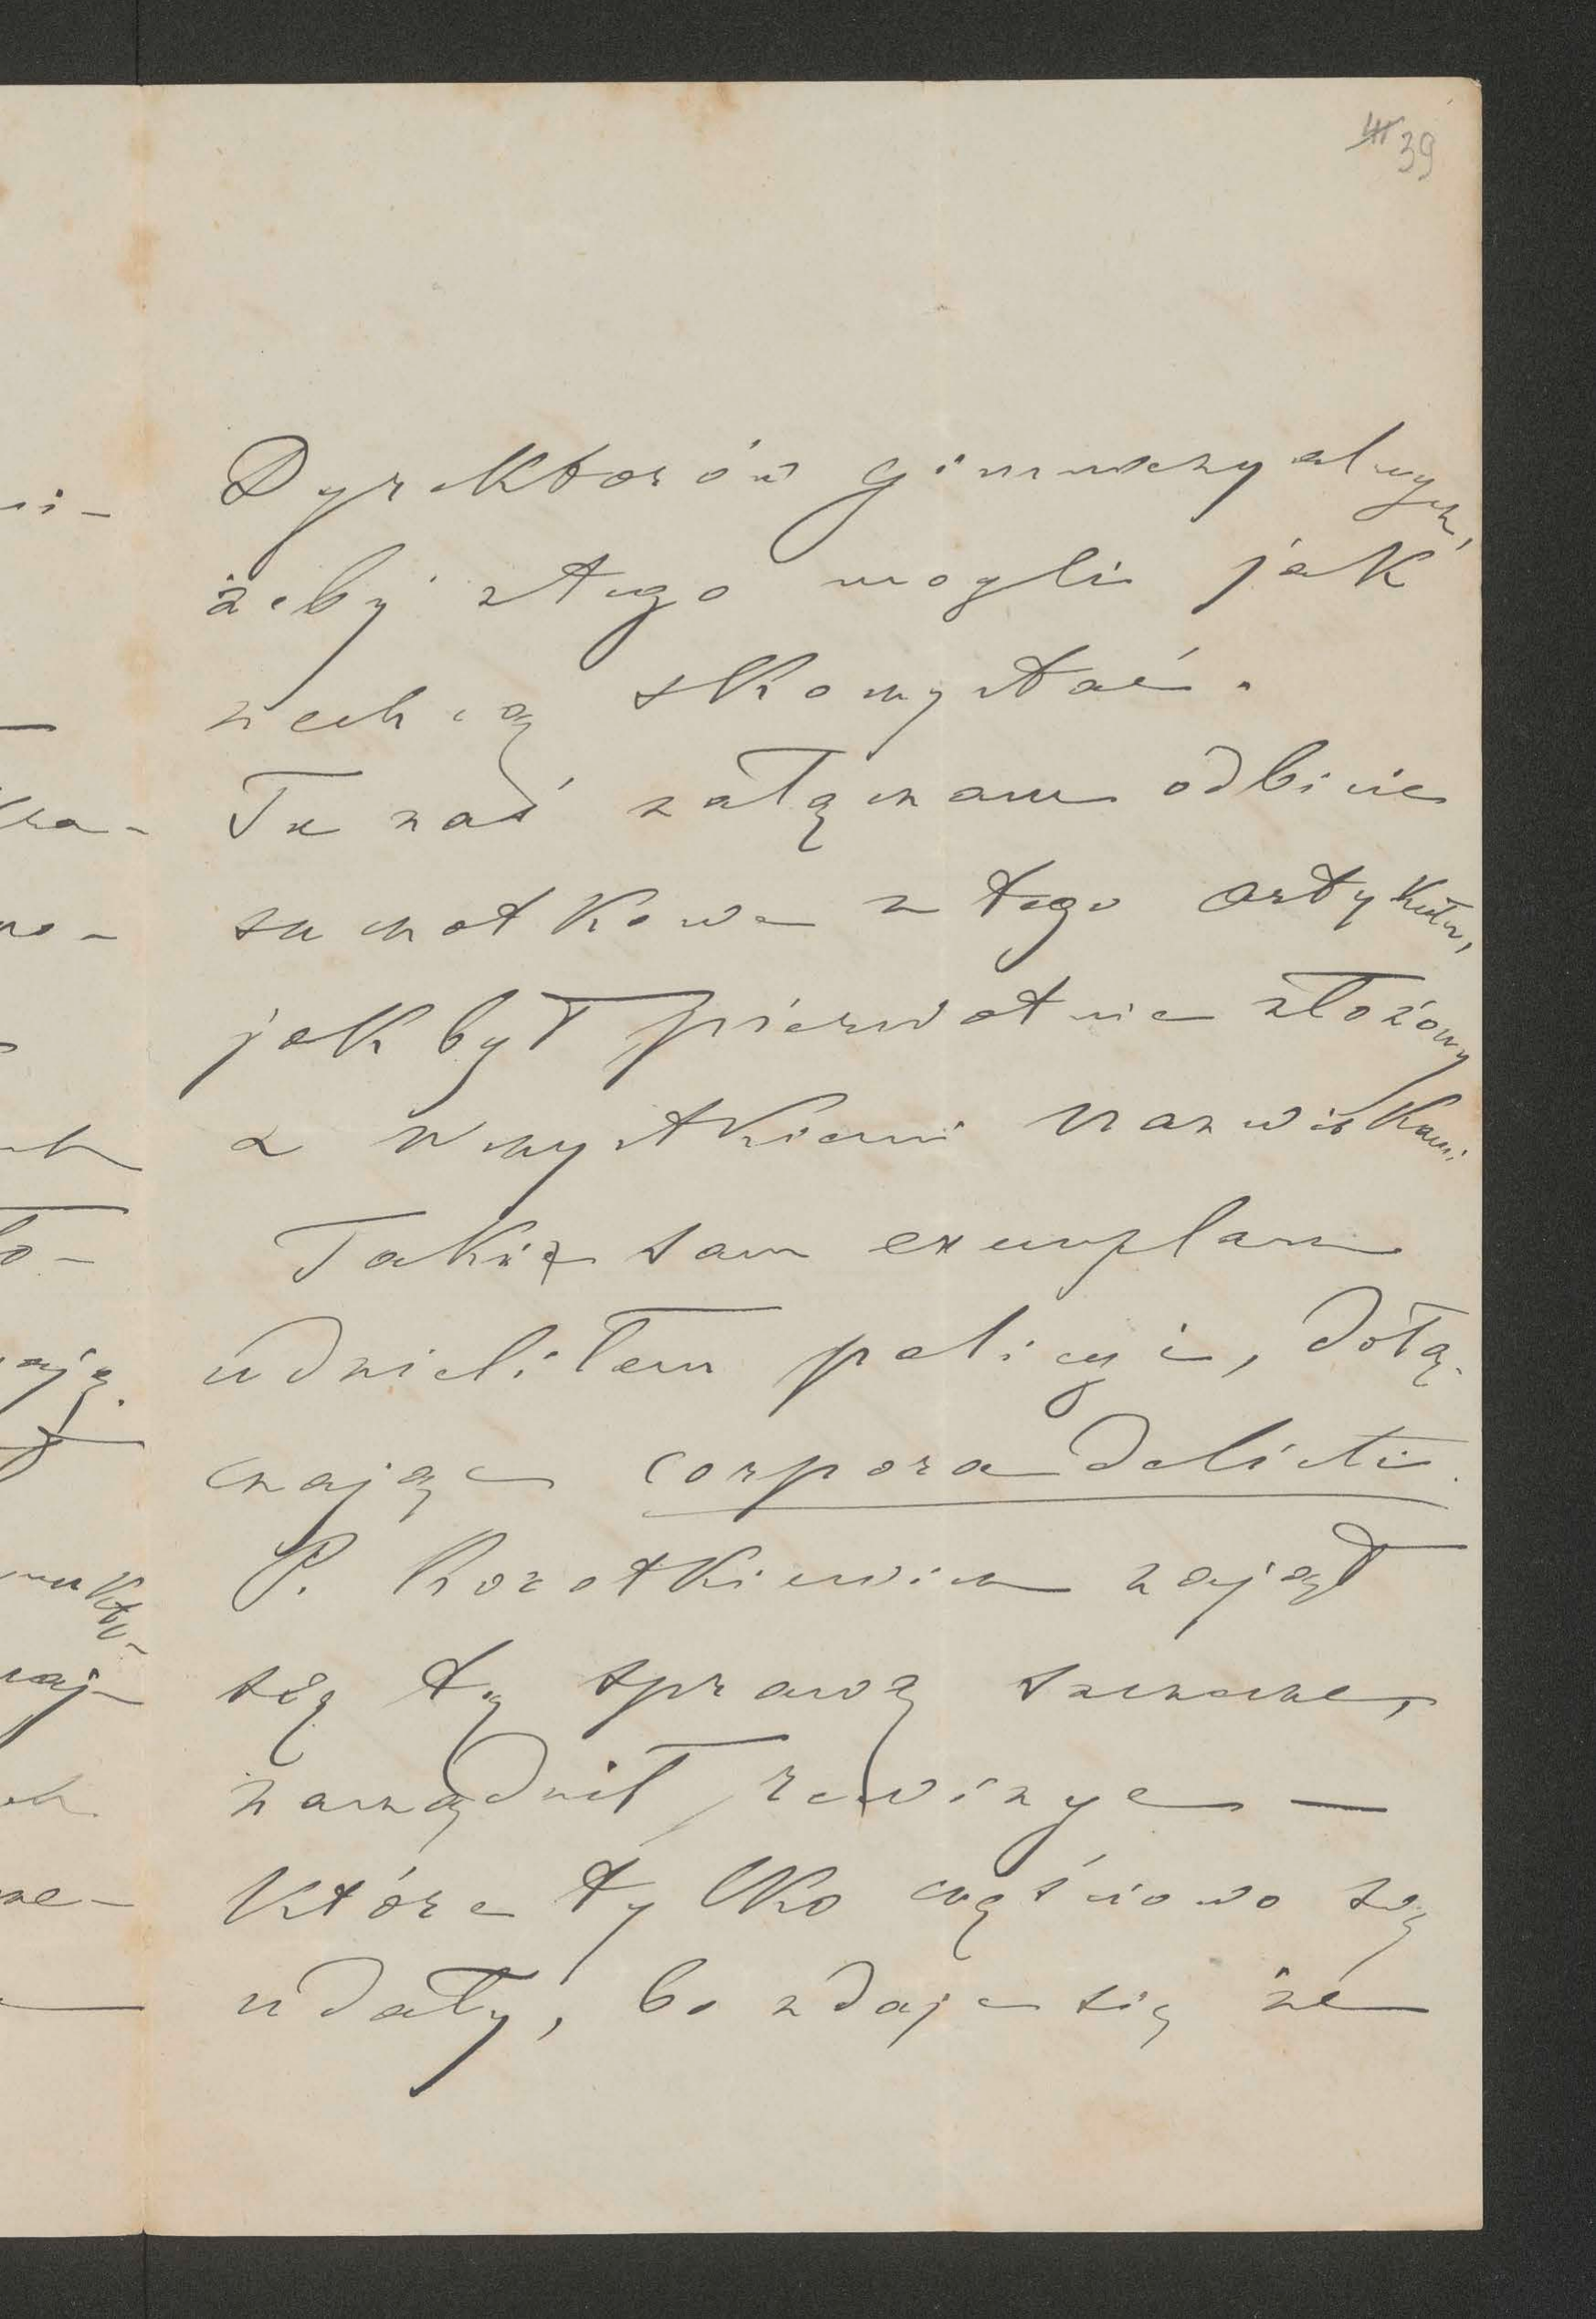 39
Dyrektorów gimnazyalnych,
żeby z tego mogli jak
zechcą skorzystać.
Tu zaś załączam odbicie
szczotkowe z tego artykułu,
jak był pierwotnie złożony
z wszystkiemi nazwiskami
Takiż sam exemplarz
udzieliłem policyi, dołą-
czając corpora delicti.
P. Korotkiewicz zajął
się tą sprawą szczerze,
zarządził rewizye —
które tylko częściowo się
udały, bo zdaje się że